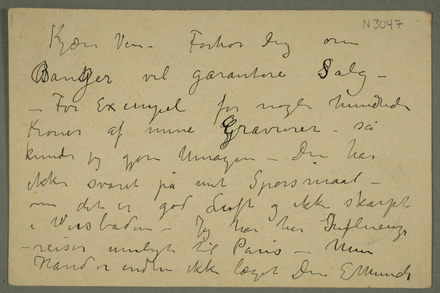 N 3047
Kjære Ven – Forhør Dig om
Banger vil garantere Salg –
– For Exempel for nogle hundrede
Kroner af mine Gravurer – så
kunde jeg gjøre Umagen – Du har
ikke svaret på mit Spørsmaal –
om det er god Luft og ikke skarpt
i Wiesbaden – Jeg har havt Influenza
– reiser muligt til Paris – Min
Haand er endnu ikke læget Din E Munch